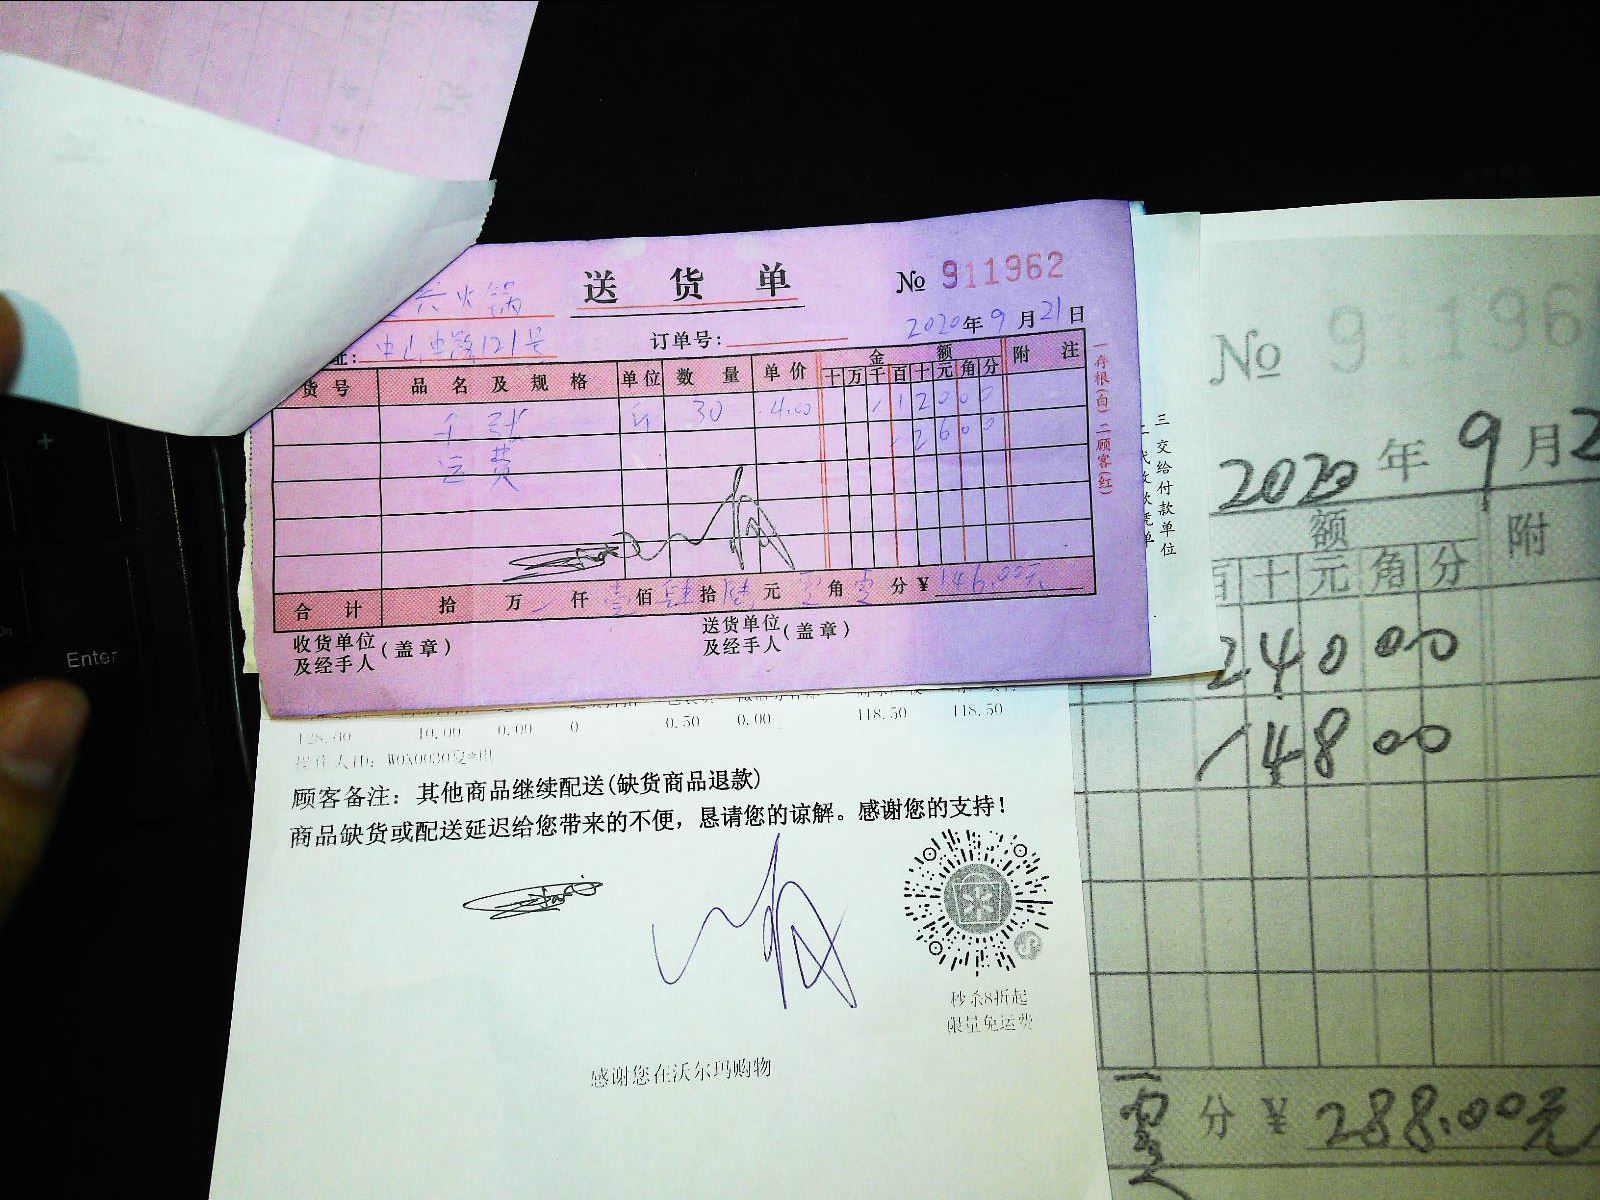 送 货 单
№ 911962
火锅
121号
订单号:
2020年9月21日
货号 品名及规格 单位 数量 单价 金额 附注
十万千百十元角分
30 4.00 12000
运费 2600
合计 拾 万 仟 壹佰肆拾陆元零角零分¥146.00元
收货单位及经手人(盖章)
送货单位及经手人(盖章)
一存根(白)二顾客(红)
三交给付款单位
10.00 0.00 0 0.50 0.00 118.50 118.50
顾客备注：其他商品继续配送(缺货商品退款)
商品缺货或配送延迟给您带来的不便，恳请您的谅解。感谢您的支持！
秒杀8折起
限量免运费
感谢您在沃尔玛购物
№ 9 196
2020年9月2
额 附
百十元角分
24000
4800
零分¥288.00元
Enter